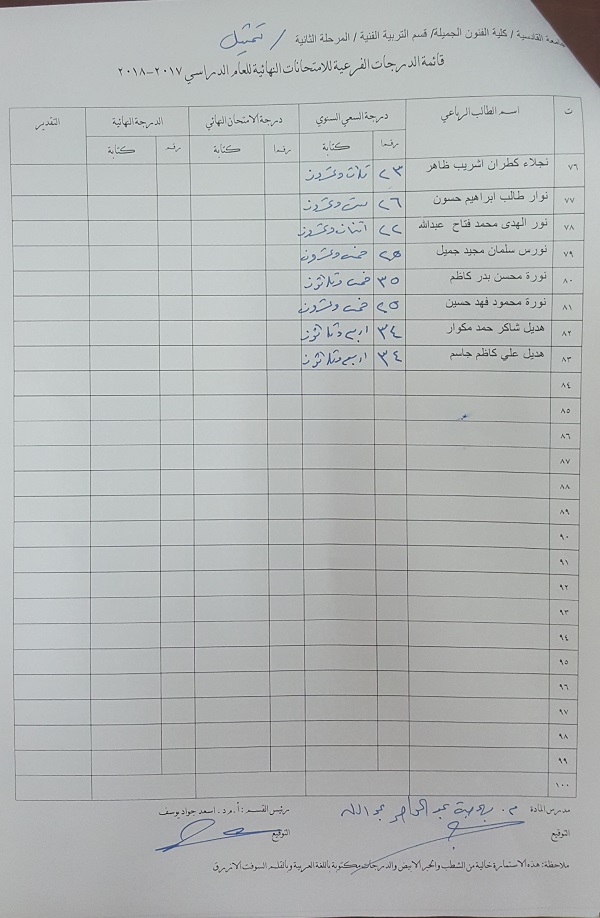 جامعة القادسية / كلية الفنون الجميلة/ قسم التربية الفنية / المرحلة الثانية / تمثيل
قائمة الدرجات الفرعية للامتحانات النهائية للعام الدراسي ٢٠١٧-٢٠١٨
ت اسم الطالب الرباعي درجة السعي السنوي درجة الامتحان النهائي الدرجة النهائية التقدير
رقما كتابة رقما كتابة رقما كتابة
٧٦ نجلاء كطران اشريب ظاهر ٢٣ ثلاث وعشرون
٧٧ نوار طالب ابراهيم حسون ٢٦ ست وعشرون
٧٨ نور الهدى محمد فتاح عبدالله ٢٢ اثنان وعشرون
٧٩ نورس سلمان مجيد جميل ٢٥ خمس وعشرون
٨٠ نورة محسن بدر كاظم ٣٥ خمس وثلاثون
٨١ نورة محمود فهد حسين ٢٥ خمس وعشرون
٨٢ هديل شاكر حمد مكوار ٣٤ اربع وثلاثون
٨٣ هديل علي كاظم جاسم ٣٤ اربع وثلاثون
٨٤
٨٥
٨٦
٨٧
٨٨
٨٩
٩٠
٩١
٩٢
٩٣
٩٤
٩٥
٩٦
٩٧
٩٨
٩٩
١٠٠
مدرس المادة م. عبد الله رئيس القسم : أ.م.د. اسعد جواد يوسف
التوقيع التوقيع
ملاحظة: هذه الاستمارة خالية من الشطب والحبر الابيض والدرجات مكتوبة باللغة العربية وبالقلم السوفت الازرق